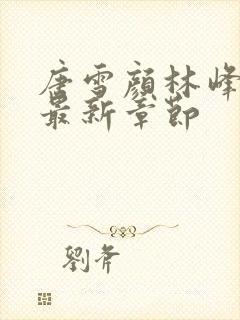 唐雪顏林峰
最新章節
劉斧